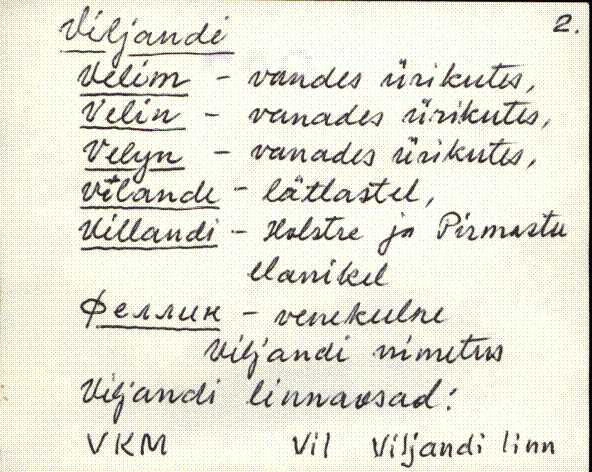 2.
Viljandi
Velim - vandes ürikutes,
Velin - vanades ürikutes,
Velyn - vanades ürikutes,
Vilande - lätlastel,
Villandi - Holstre ja Pirmastu
elanikel
Феллин - venekelne
Viljandi nimetus
Viljandi linnaosad:
VKM Vil Viljandi linn